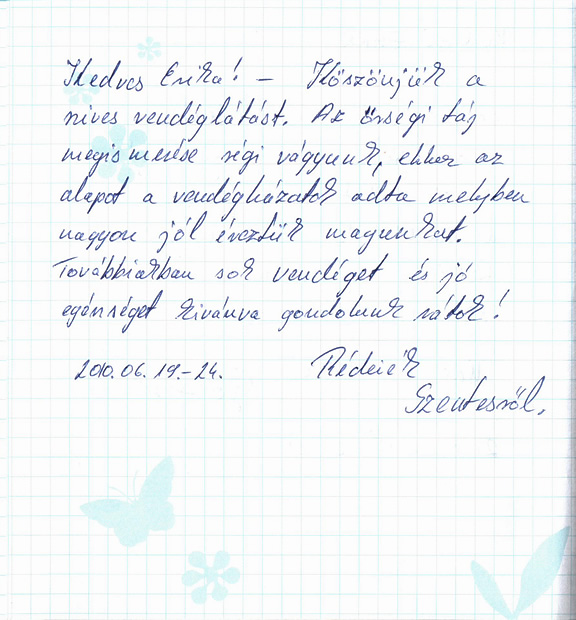 Kedves Erika! – Köszönjük a
szives vendéglátást. Az őrségi táj
megismerése régi vágyunk, ehhez az
alapot a vendégházatok adta melyben
nagyon jól éreztük magunkat.
Továbbiakban sok vendéget és jó
egészséget kivánva gondolunk rátok!
2010.06.19.-24. Rédeiék
Szentesről.